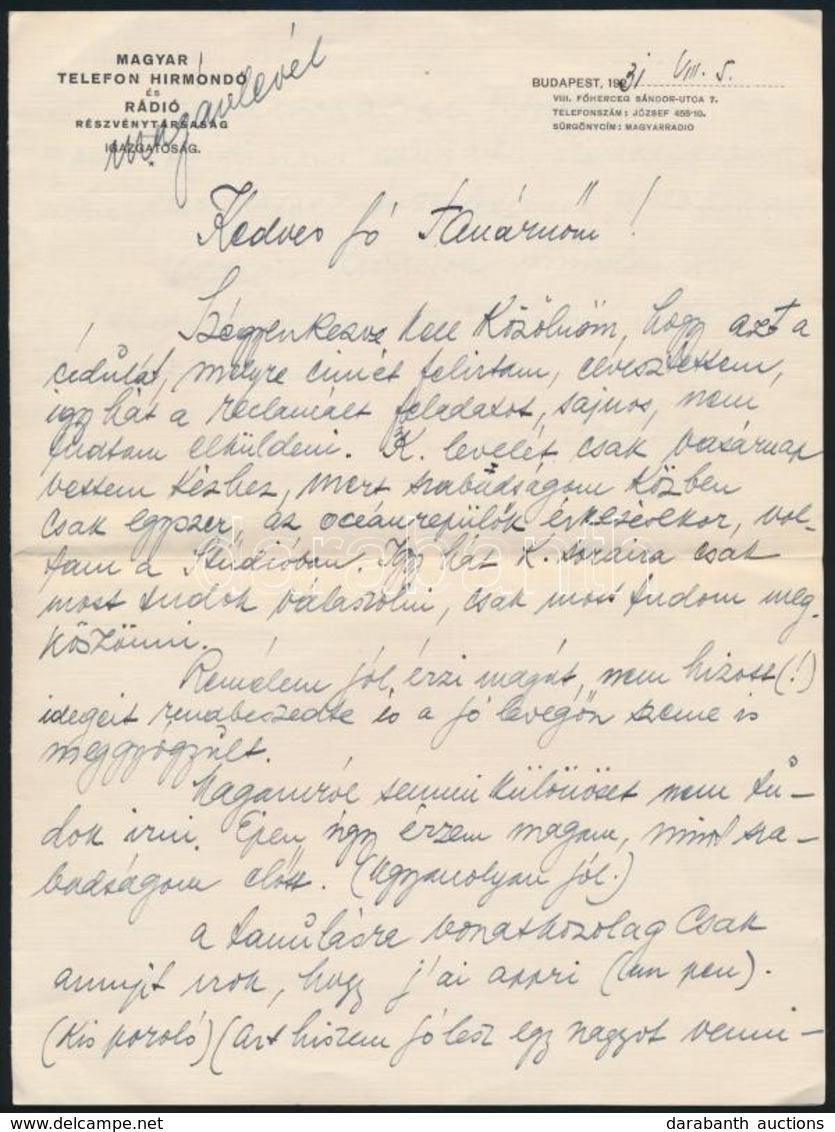 MAGYAR
TELEFON HIRMONDÓ
ÉS
RÁDIÓ
RÉSZVÉNYTÁRSASÁG
IGAZGATÓSÁG.
*
magánlevél
BUDAPEST, 1931 VIII. 5.
VIII. FŐHERCEG SÁNDOR-UTCA 7.
TELEFONSZÁM: JÓZSEF 455-10.
SÜRGÖNYCÍM: MAGYARRADIO
Kedves jó Tanárnőm!
Szégyenkezve kell közölnöm, hogy azt a
cédulát, melyre címét felírtam, elvesztettem,
így hát a reclamált feladatot, sajnos, nem
tudtam elküldeni. K. levelét csak vasárnap
vettem kézhez, mert szabadságom közben
csak egyszer, az oceánrepülők érkezésekor, vol-
tam a Studióban. Igy hát K. soraira csak
most tudok válaszolni, csak most tudom meg-
köszönni.
Remélem jól érzi magát, nem hizott (!)
idegeit rendbeszedte és a jó levegőn szeme is
meggyógyult.
Magamról semmi különöset nem tu-
dok irni. Épen úgy érzem magam, mint sza-
badságom előtt. (Ugyanolyan jól.)
A tanulásra vonatkozolag csak
annyit irok, hogy j'ai appri (un peu).
(Kis poroló) (Azt hiszem jó lesz egy nagyot venni-
darabanth
www.darabanth.com
darabanth auctions